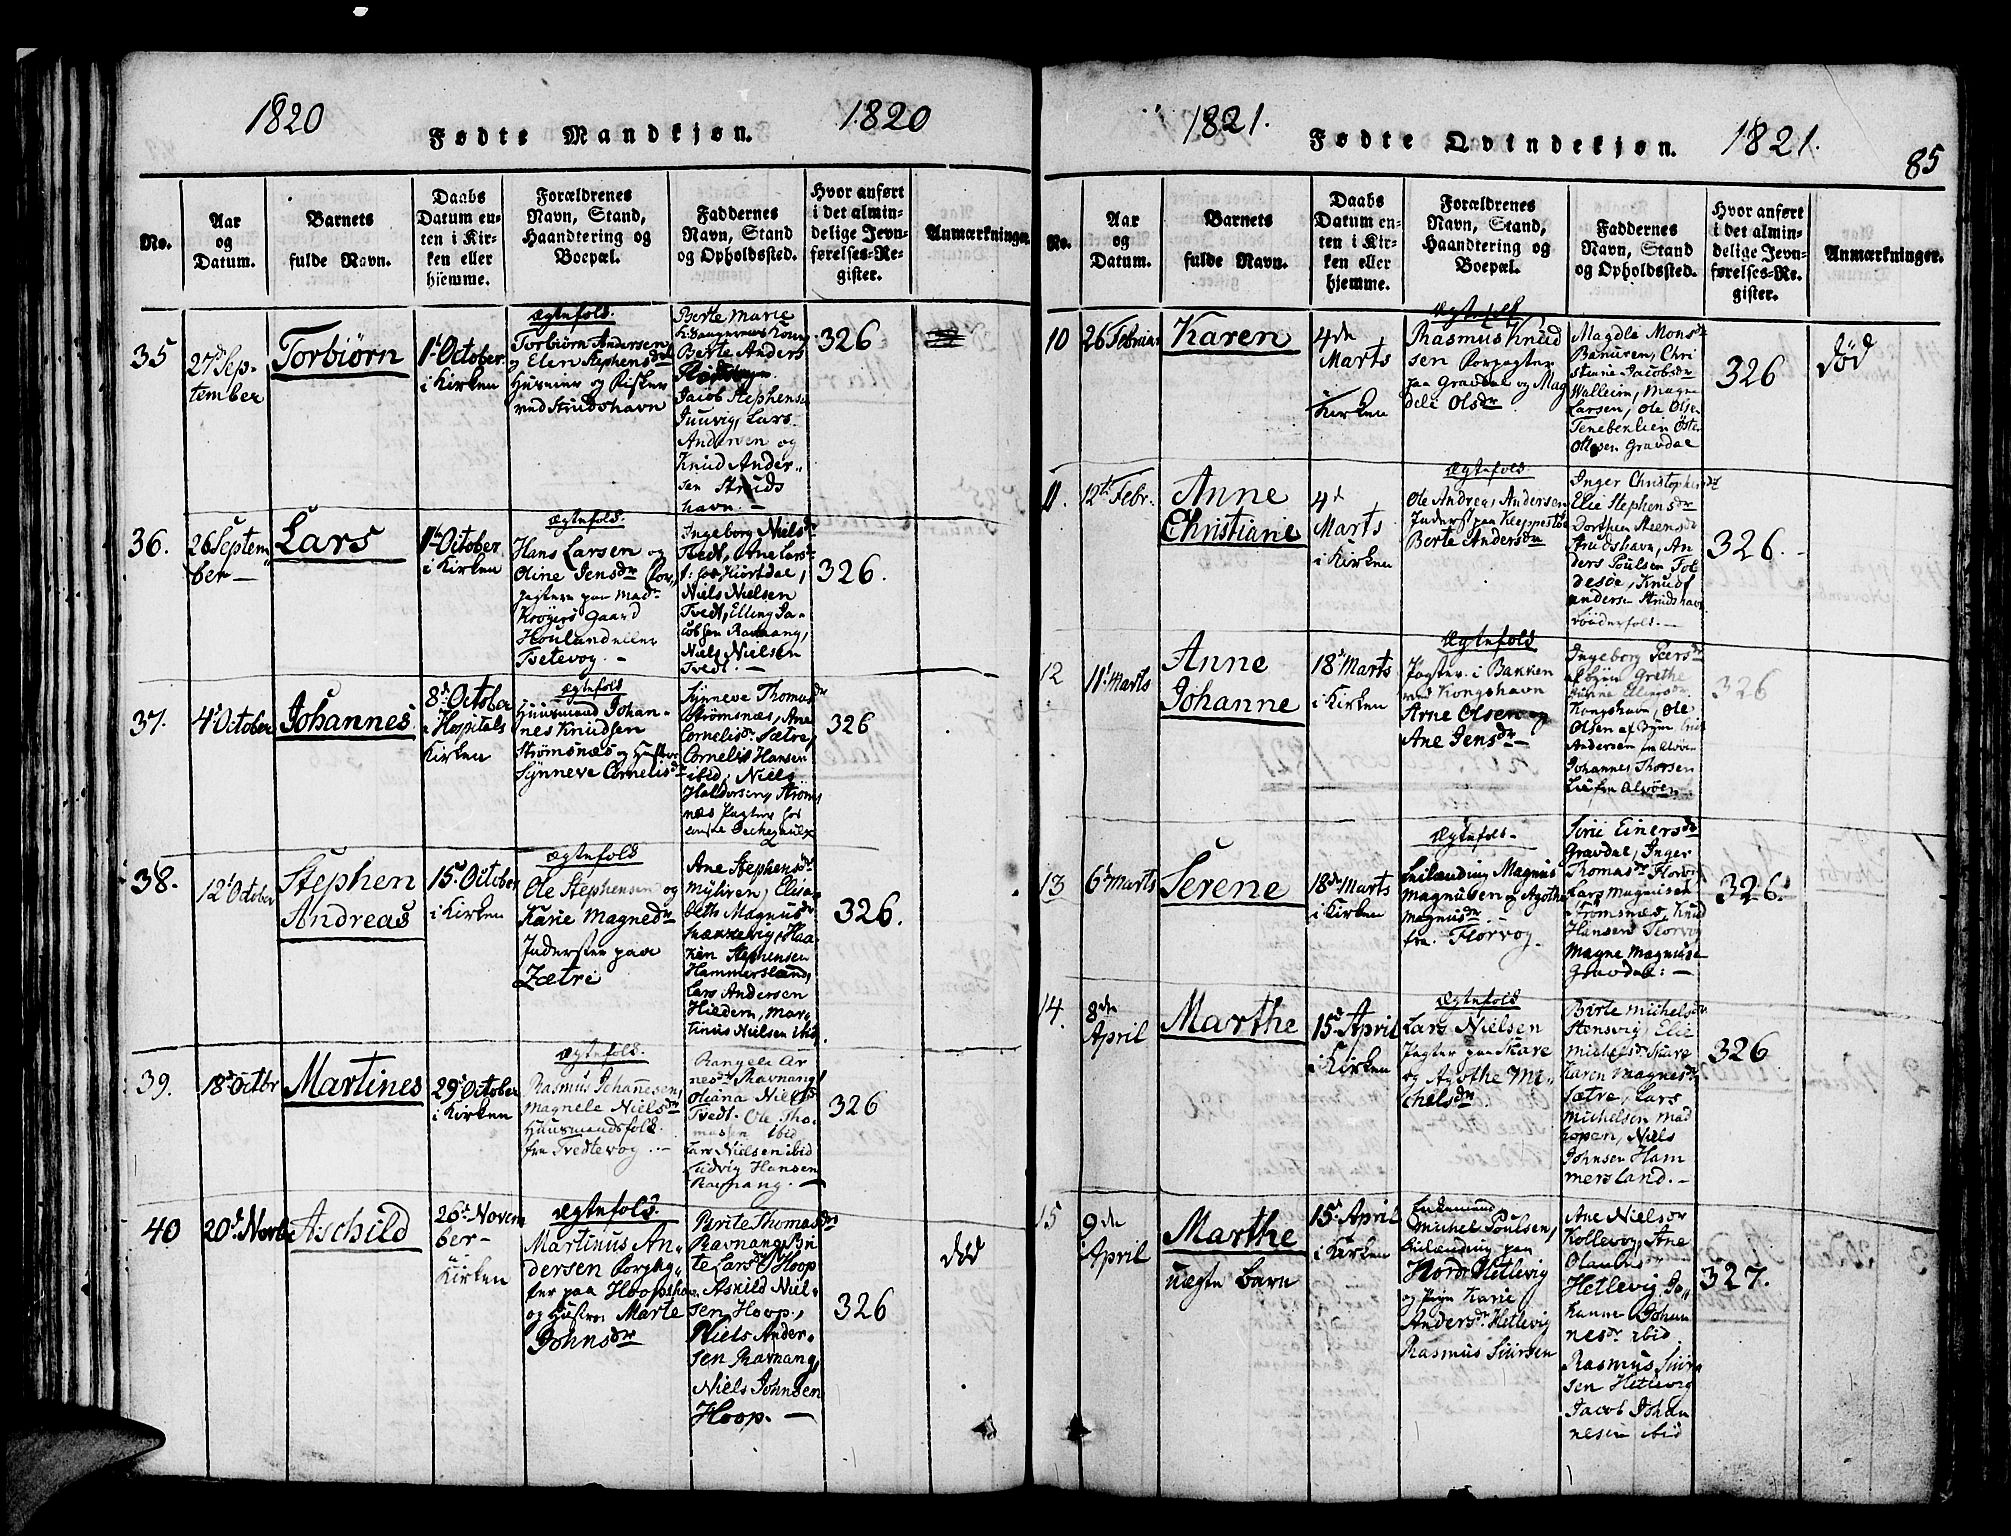 1820
Fødte Mandkjøn.
1820
No.
Aar
og
Datum.
Barnets
fulde Navn.
Daabs
Datum en-
ten i Kir-
ken eller
hjemme.
Forældrenes
Navn, Stand,
Haandtering og
Boepæl.
Faddernes
Navn, Stand
og Opholdssted.
Hvor anført
i det almin-
delige Jevn-
førelses-Re-
gister.
Anmærkninger.
35
27de Sep-
tember
Torbiørn
1te October
i Kirken
Ægtefold.
Torbiørn Andersen
og Elen Stephensdr
Huusmd og Fisker
ved Strudshavn
Berte Marie
Berte Anders
Jacob Stephensen
Juuvig, Lars
Andersen og
Knud Ander-
sen Struds
havn. -
326
36.
26 Septem
ber -
Lars
1te October
i Kirken
Ægtefold.
Hans Larsen og
Oline Jensdr
Krøyers Gaard
Houland eller
Tvetevog. -
Ingeborg Nielsdr
Tvedt, Ane Larsdr
Hiortdal,
Niels Nielsen
Tvedt, Elling Ja-
cobsen Ravnang,
Niels Nielsen
Tvedt. -
326.
37.
4de October
Johannes
8de October
i Hospitals
Kirken
Ægtefold
Huusmand Johan-
nes Knudsen
Strømsnæs og Hustroe
Synneve Cornelisdr
Synneve Thomasdr
Strømsnæs, Ane
Cornelisdr Sætre,
Cornelis Hansen
ibid, Niels
Haldorsen, Strøms
næs
326
38.
12te October
Stephen
Andreas
15de October
i Kirken
Ægtefold
Ole Stephensen og
Karie Magnedr
Inderster paa
Zætre
Ane Stephensdr
Myhren, Elisa
beth Magnusdr
Snækkevig, Haa-
ken Stephensen
Hammersland,
Lars Andersen
Hildern, Mar-
tinus Nielsen ibid
326.
39.
18de Octbr
Martines
29de October
i Kirken
Ægtefold.
Rasmus Johannesen,
Magnele Nielsdr
Huusmandsfolk
fra Tvedtevog. -
Rangele Ar
nesdr Ravnang
Oliana Nielsdr
Tvedt. Ole Tho-
massen ibid
Lars Nielsen ibid
Ludvig Hansen
Ravnang. -
326
40
20de Novbr
Aschild
26de Novem
ber -
Kirken
Ægtefold.
Martinus An-
dersen Forpag-
ter paa Hoopshavn
og Hustroe Marte
Johnsdr
Berite Thomasdr
Ravnang, Bri
te Larsdr Hoop
Askild Niel-
sen Hoop,
Niels Ander-
sen Ravnang,
Niels Johnsen
Hoop. -
326
død
1821.
Fødte Qvindekjøn.
1821.
85
No.
Aar
og
Datum.
Barnets
fulde Navn.
Daabs
Datum en-
ten i Kir-
ken eller
hjemme.
Forældrenes
Navn, Stand,
Haandtering og
Boepæl.
Faddernes
Navn, Stand
og Opholdssted.
Hvor anført
i det almin-
delige Jevn-
førelses-Re-
gister.
Anmærkninger.
10
26 Februar
Karen
4de
Marts
Kirken
Ægtefolk
Rasmus Knud
sen Forpagter
paa Gravdal og Mag
dele Olsdr
Magdla Monsdr
Banuren, Chri
stiane Jacobsdr
Walleim, Magne
Larsen, Ole Olsen
Olsen Gravdal
326
død
11.
12te Febr.
Anne
Christiane
4de
Marts
i Kirken
Ægtefold
Ole Andreas Andersen
Inderst paa Kleppestøe
Berte Andersdr
Inger Christophersdr
Elie Stephensdr
Dorthea Steensdr
Strudshavn, An
ders Poulsen Fol
desøe, Knud
Andersen Strudshavn
326.-
12
11te Marts
Anne
Johanne
18de Marts
i Kirken
Ægtefold
Pagter i Bakken
ved Kongshavn
Arne Olsen og
Ane Jensdr -
Ingeborg Peersdr
Grethe
Ellingsdr
Kongshavn, Ole
Olsen af Byen
Andersen fra Alvøen
Johannes Thorsen
Lie fra Alvøen.
326
13
6te Marts
Serene
18de Marts
i Kirken
Ægtefold -
Magnus
Magnusen og Agothe
Magnusdr -
fra Florvog.
Sirie Einersdr
Gravdal, Inger
Thomasdr Florvog
Lars Magnusen
Strømsnæs, Knud
Hansen Florvog
Magne Magnusen
Gravdal: -
326.
14.
8de
April
Marthe
15de April
i Kirken
Ægtefold
Lars Nielsen
Pagter paa Skare
og Agothe Mi-
chelsdr
Birte Michelsdr
Stensvig, Elie
Michelsdr Skare
Karen Magnesdr
Sætre, Lars
Michelsen Mad
hopen, Niels
Johnsen Ham
mersland. -
326
15
9de
April
Marthe
uægte Barn
15de April
i Kirken
Enkemand
Michel Poulsen,
paa
Nordr Hetlevig
og Pige Karie
Andersdr Hetlevig
Rasmus Siursen
Ane Nielsdr
Kollevog, Ane
Olausdr
Hetlevig, Jo-
hanne Johan
nesdr ibid
Rasmus Siur
sen Hetlevig
Jacob Johan
nesen ibid
327.